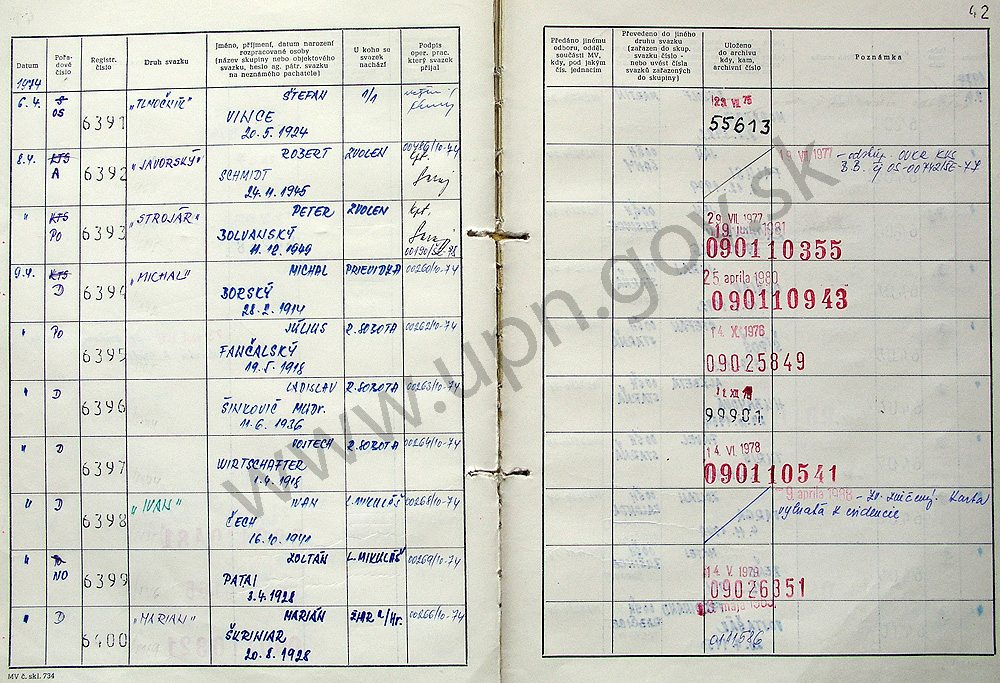 42
Datum
Pořadové číslo
Registr. číslo
Druh svazku
Jméno, příjmení, datum narození rozpracované osoby
(název skupiny nebo objektového svazku, heslo ag. pátr. svazku na neznámého pachatele)
U koho su svazek nachází
Podpis oper. prac. který svazek přijal
Předáno jinému odboru, odděl. součásti MV, kdy, pod jakým čís. jednacím
Převedeno do jiného druhu svazku (zařazen do skup. svazku číslo - nebo uvést čísla svazků zařazených do skupiny)
Uloženo do archivu kdy, kam, archivní číslo
Poznámka
1974
6.4. 05 6391 "TLMOČNÍK" ŠTEFAN 1/1
VINCE
20.5.1924
23. VII. 75
55613
8.4. KTS A 6392 "JAVORSKÝ" ROBERT ZVOLEN
SCHMIDT
24.11.1945
19. VII 1977 - odstúp. OVCR KVS
B.B. čj OS-00742/SE-77
" KTS PO 6393 "STROJÁR" PETER ZVOLEN kpt.
BOLVANSKÝ
11.12.1949
29. VII. 1977
090110355
9.4. KTS D 6394 "MICHAL" MICHAL PRIEVIDZA 00260/10-74
BORSKÝ
28.2.1914
25 apríla 1980
090110943
" PO 6395 JÚLIUS R. SOBOTA 00262/10-74
FANČALSKÝ
19.5.1918
14. X. 1976
09025849
" D 6396 LADISLAV R. SOBOTA 00263/10-74
ŠINKOVIČ MUDr.
11.6.1936
99901
" D 6397 VOJTECH R. SOBOTA 00264/10-74
WIRTSCHAFTER
1.4.1918
14. VI. 1978
090110541
" D 6398 "IVAN" IVAN L. MIKULÁŠ 00268/10-74
ČECH
16.10.1941
- 9. apríla 1988 - Zv. zničený. Karta
vyňatá z evidencie
" NO 6399 ZOLTÁN L. MIKULÁŠ 00269/10-74
PATAI
3.4.1928
14. V. 1979
09026351
" D 6400 "MARIAN" MARIÁN ŽIAR n/Hr. 00266/10-74
ŠKRINIAR
20.8.1928
MV č. skl. 734
www.upn.gov.sk